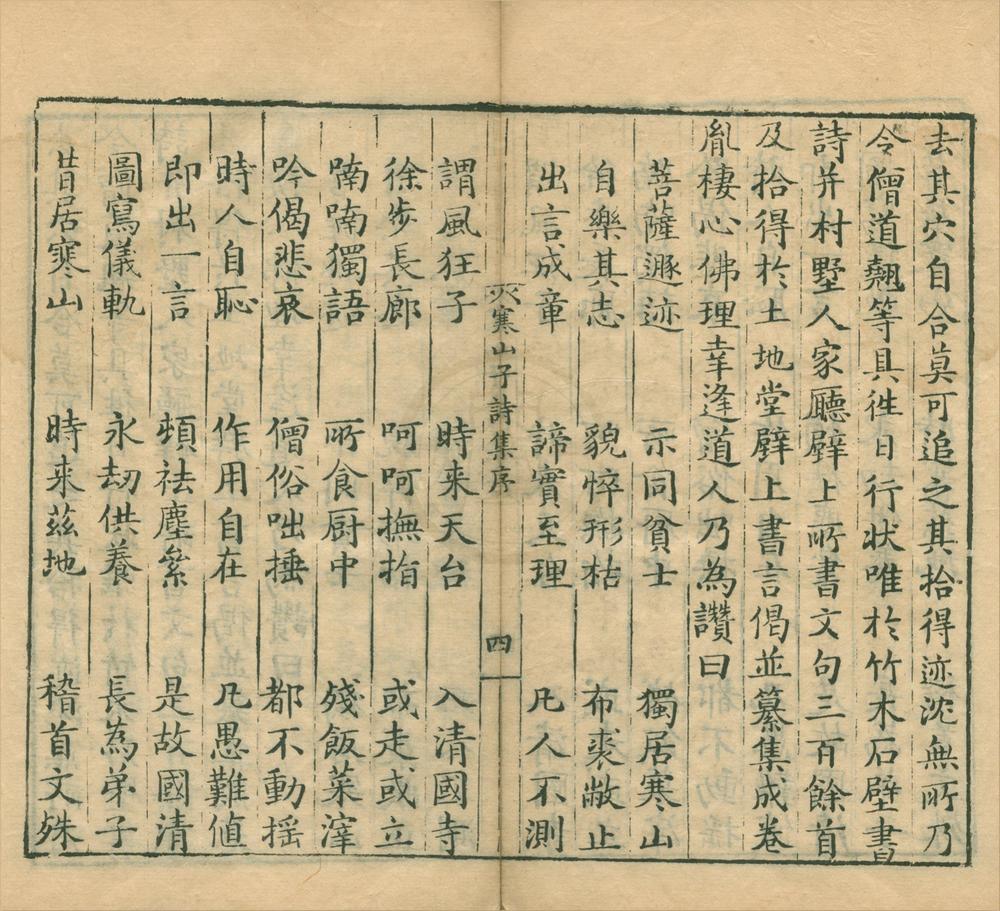 去其穴自合莫可追之其拾得迹沈無所乃
令僧道翹等具徃日行状唯於竹木石壁書
詩并村墅人家廳壁上所書文句三百餘首
及拾得於土地堂壁上書言偈並纂集成卷
胤棲心佛理幸逢道人乃為讚曰
菩薩遯迹 示同貧士 獨居寒山
自樂其志 貌悴形枯 布裘敝止
出言成章 諦實至理 凡人不測
寒山子詩集序 四
謂風狂子 時来天台 入清國寺
徐步長廊 呵呵撫指 或走或立
喃喃獨語 所食厨中 殘飯菜滓
吟偈悲哀 僧俗咄捶 都不動揺
時人自恥 作用自在 凡愚難値
即出一言 頓祛塵累 是故國清
圖寫儀軌 永劫供養 長為弟子
昔居寒山 時来兹地 稽首文殊